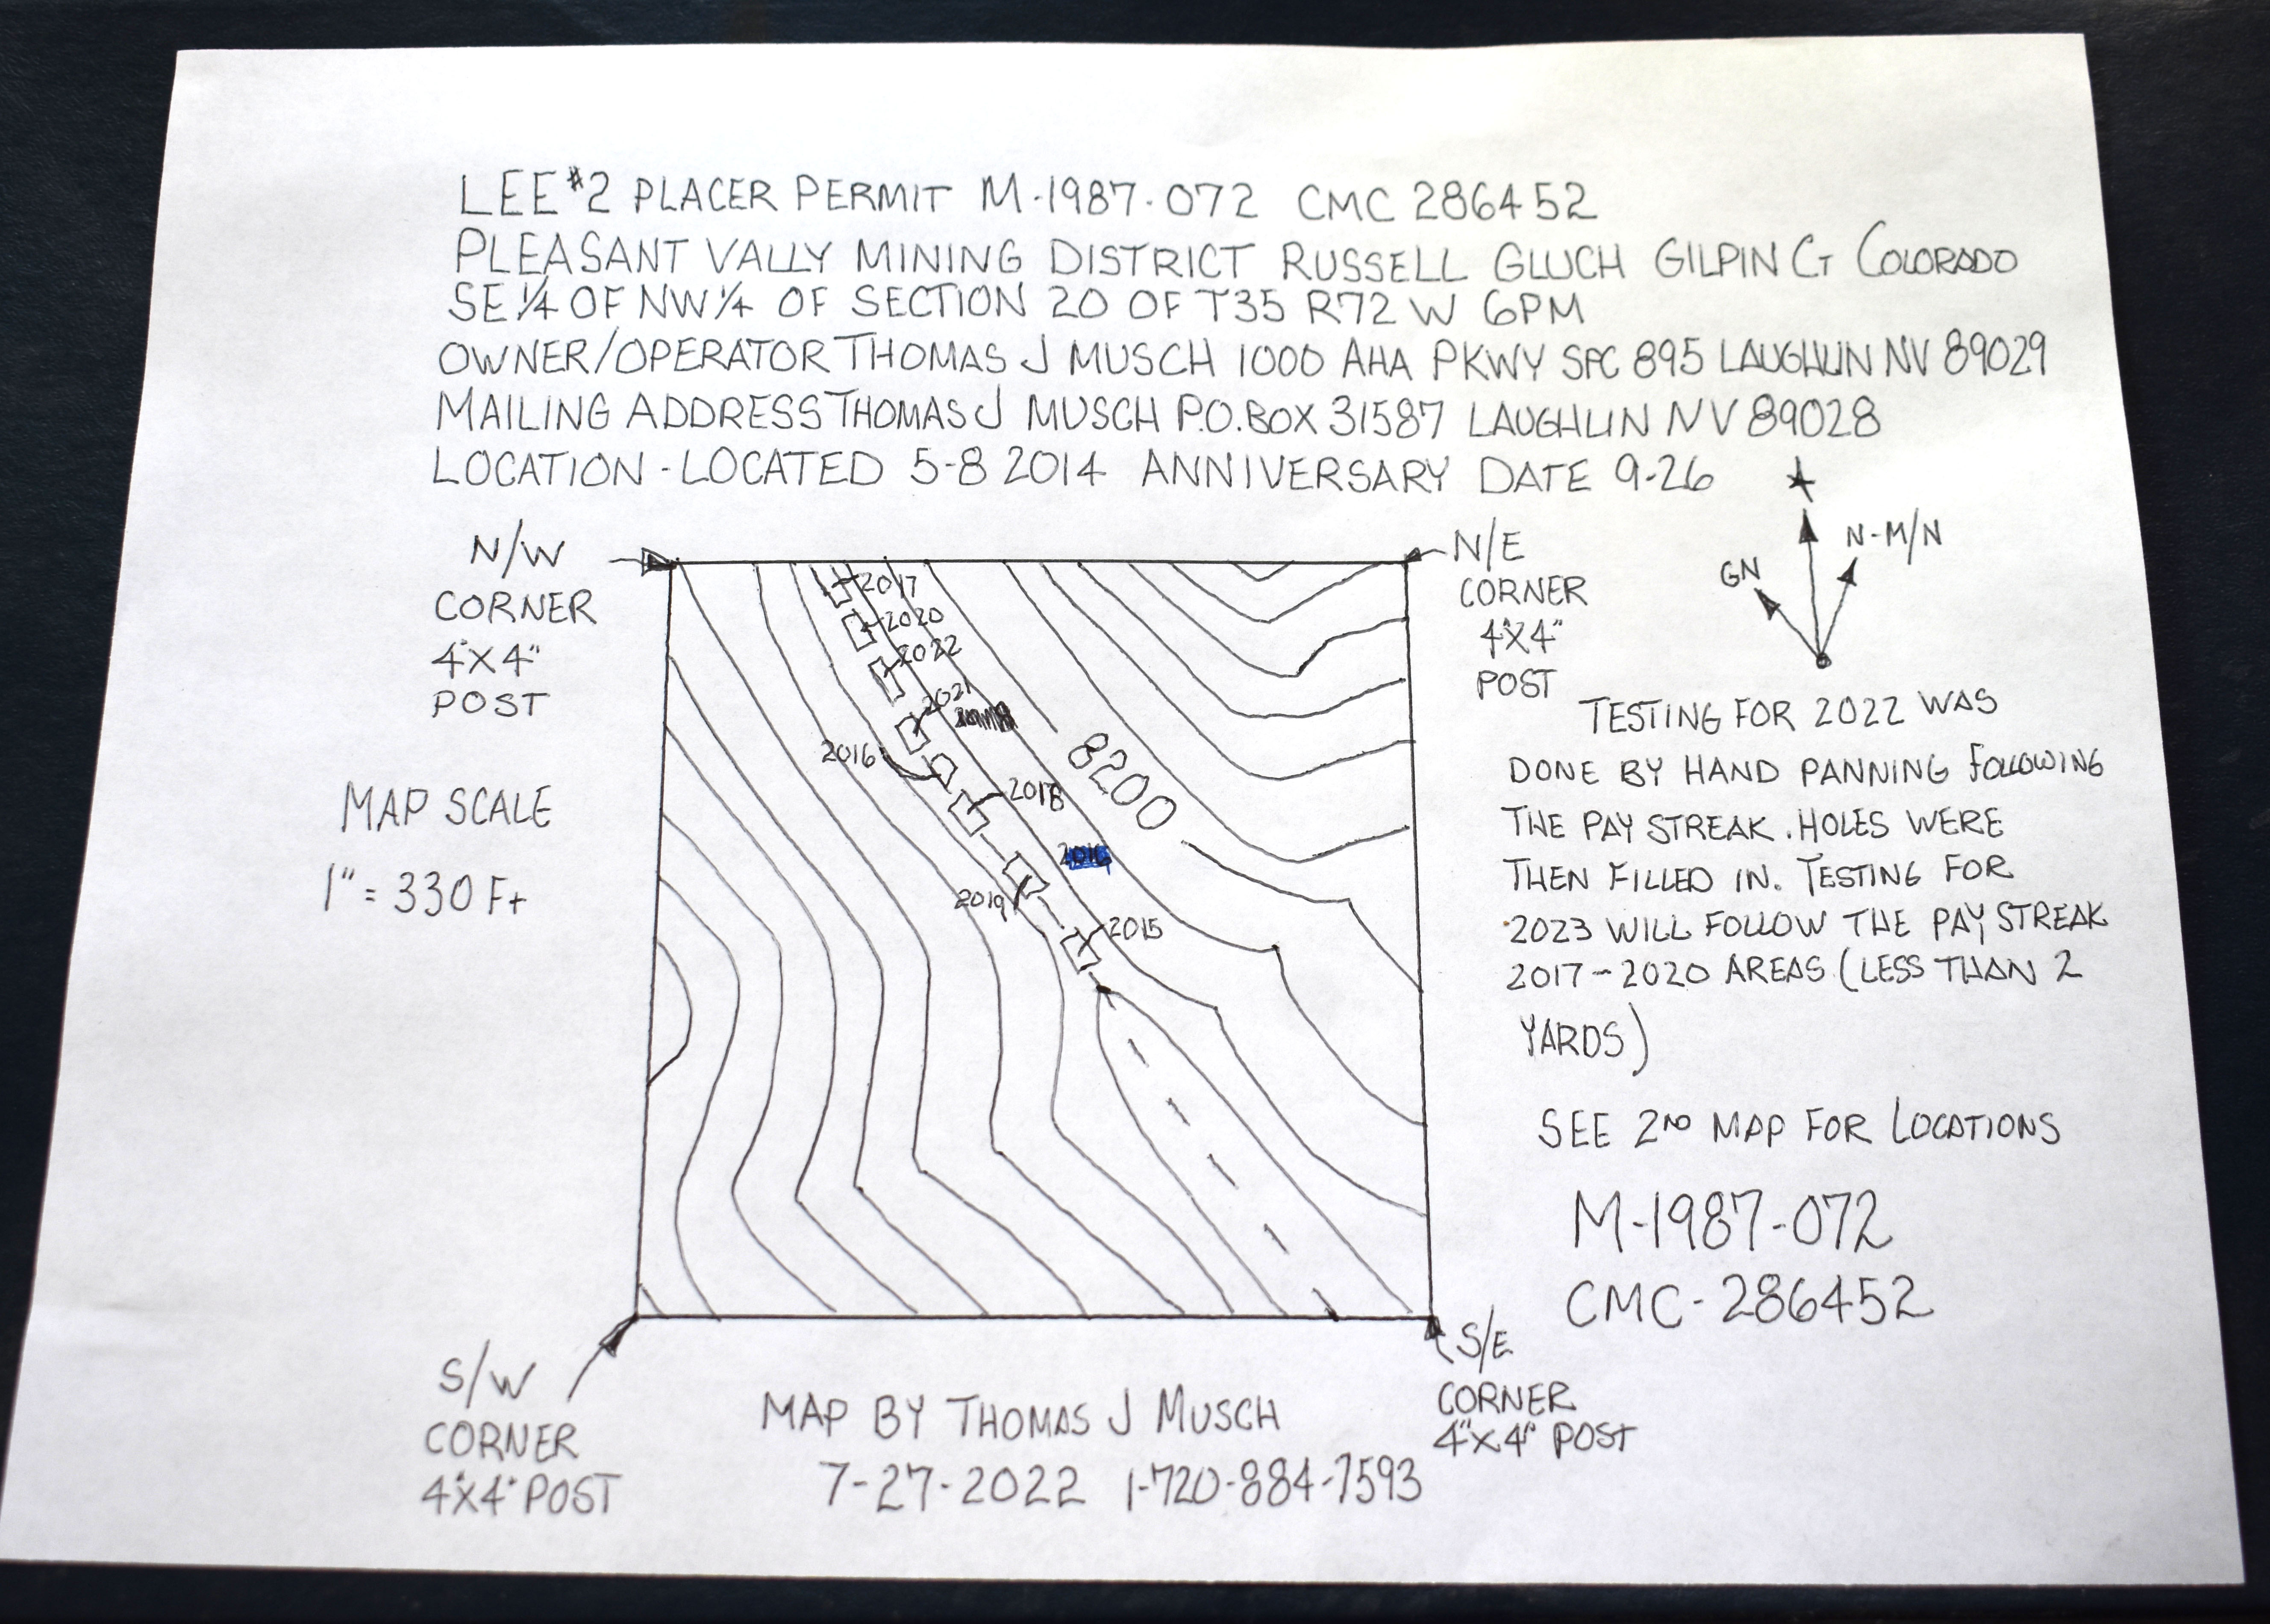 LEE #2 PLACER PERMIT M-1987-072 CMC 286452
PLEASANT VALLY MINING DISTRICT RUSSELL GLUCH GILPIN CT COLORADO
SE 1/4 OF NW 1/4 OF SECTION 20 OF T35 R72 W 6PM
OWNER/OPERATOR THOMAS J MUSCH 1000 AHA PKWY SPC 895 LAUGHLIN NV 89029
MAILING ADDRESS THOMAS J MUSCH P.O. BOX 31587 LAUGHLIN NV 89028
LOCATION - LOCATED 5-8 2014 ANNIVERSARY DATE 9-26
N/W
CORNER
4"X4"
POST
N/E
CORNER
4"X4"
POST
GN
N-M/N
MAP SCALE
1" = 330 Ft
2017
2020
2022
2021
2016
2018
2019
2015
8200
TESTING FOR 2022 WAS
DONE BY HAND PANNING FOLLOWING
THE PAY STREAK. HOLES WERE
THEN FILLED IN. TESTING FOR
2023 WILL FOLLOW THE PAY STREAK
2017-2020 AREAS (LESS THAN 2
YARDS)
SEE 2ND MAP FOR LOCATIONS
M-1987-072
CMC-286452
S/W
CORNER
4"X4" POST
S/E
CORNER
4"X4" POST
MAP BY THOMAS J MUSCH
7-27-2022 1-720-884-7593